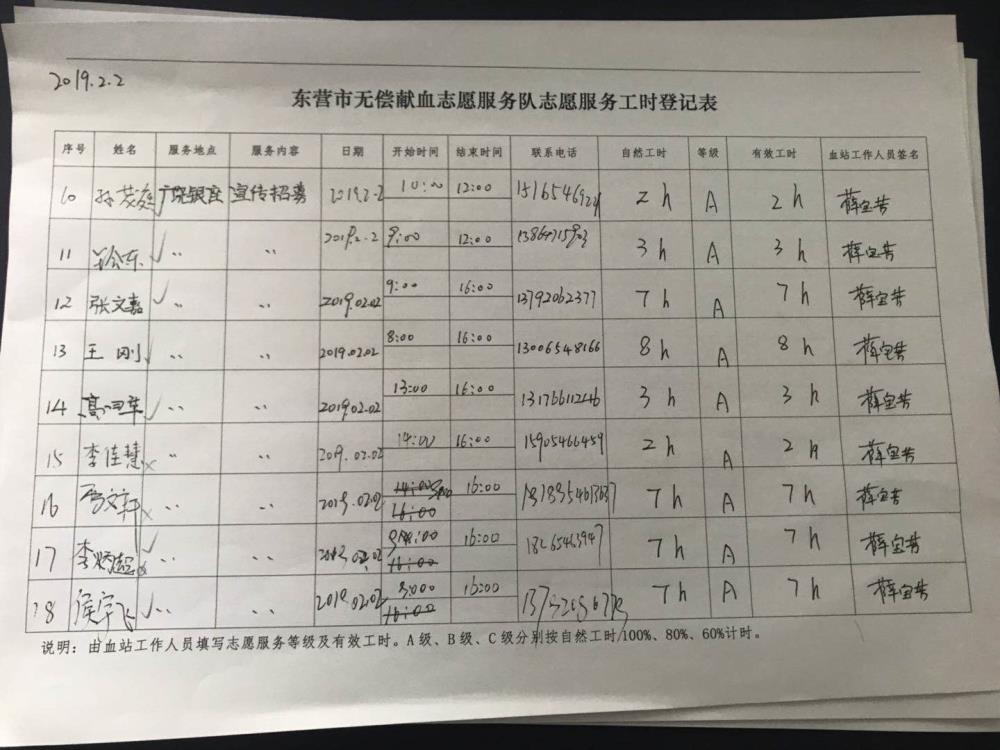 2019.2.2
东营市无偿献血志愿服务队志愿服务工时登记表
序号 姓名 服务地点 服务内容 日期 开始时间 结束时间 联系电话 自然工时 等级 有效工时 血站工作人员签名
10 孙茂庭 广饶银座 宣传招募 2019.2.2 10:00 12:00 2h A 2h 薛宝芳
11 〃 〃 2019.2.2 9:00 12:00 3h A 3h 薛宝芳
12 张文嘉 〃 〃 2019.02.02 9:00 16:00 13792062377 7h A 7h 薛宝芳
13 王刚 〃 〃 2019.02.02 8:00 16:00 13006548166 8h A 8h 薛宝芳
14 〃 〃 2019.02.02 13:00 16:00 13176611246 3h A 3h 薛宝芳
15 李佳慧 〃 〃 2019.02.02 14:00 16:00 15905466459 2h A 2h 薛宝芳
16 〃 〃 2019.02.02 16:00 7h A 7h 薛宝芳
17 〃 〃 2019.02.02 16:00 18265463947 7h A 7h 薛宝芳
18 侯宇飞 〃 〃 2019.02.02 16:00 7h A 7h 薛宝芳
说明：由血站工作人员填写志愿服务等级及有效工时。A级、B级、C级分别按自然工时100%、80%、60%计时。